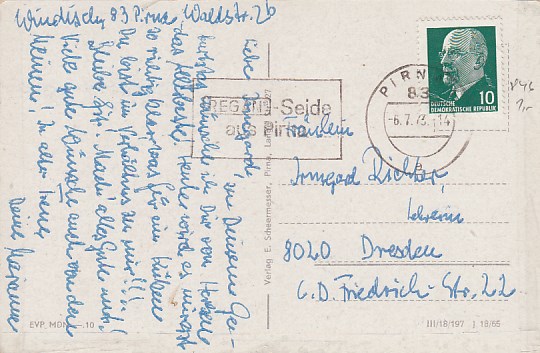 Windisch, 83 Pirna, Waldstr. 2b
Liebe Irmgard, zu Deinem Ge-
burtstag wünsche ich Dir von Herzen
das Allerbeste. Heute wird es
so richtig
Du bist im Verhältnis zu mir!!!
Bleibe Mach' alles Gute mit!
Viele gute Wünsche auch von den
Meinen! In alter Treue
Deine Marianne
REGAN -Seide
aus Pirna
PIRNA
83
-6.7.73.-14
DEUTSCHE
DEMOKRATISCHE REPUBLIK
10
Fräulein
Irmgard Richter,
Lehrerin
8020 Dresden
C.D. Friedrich-Str. 22
Verlag E. Scheermesser, Pirna, Lange
EVP MDN -.10
III/18/197 | 18/65